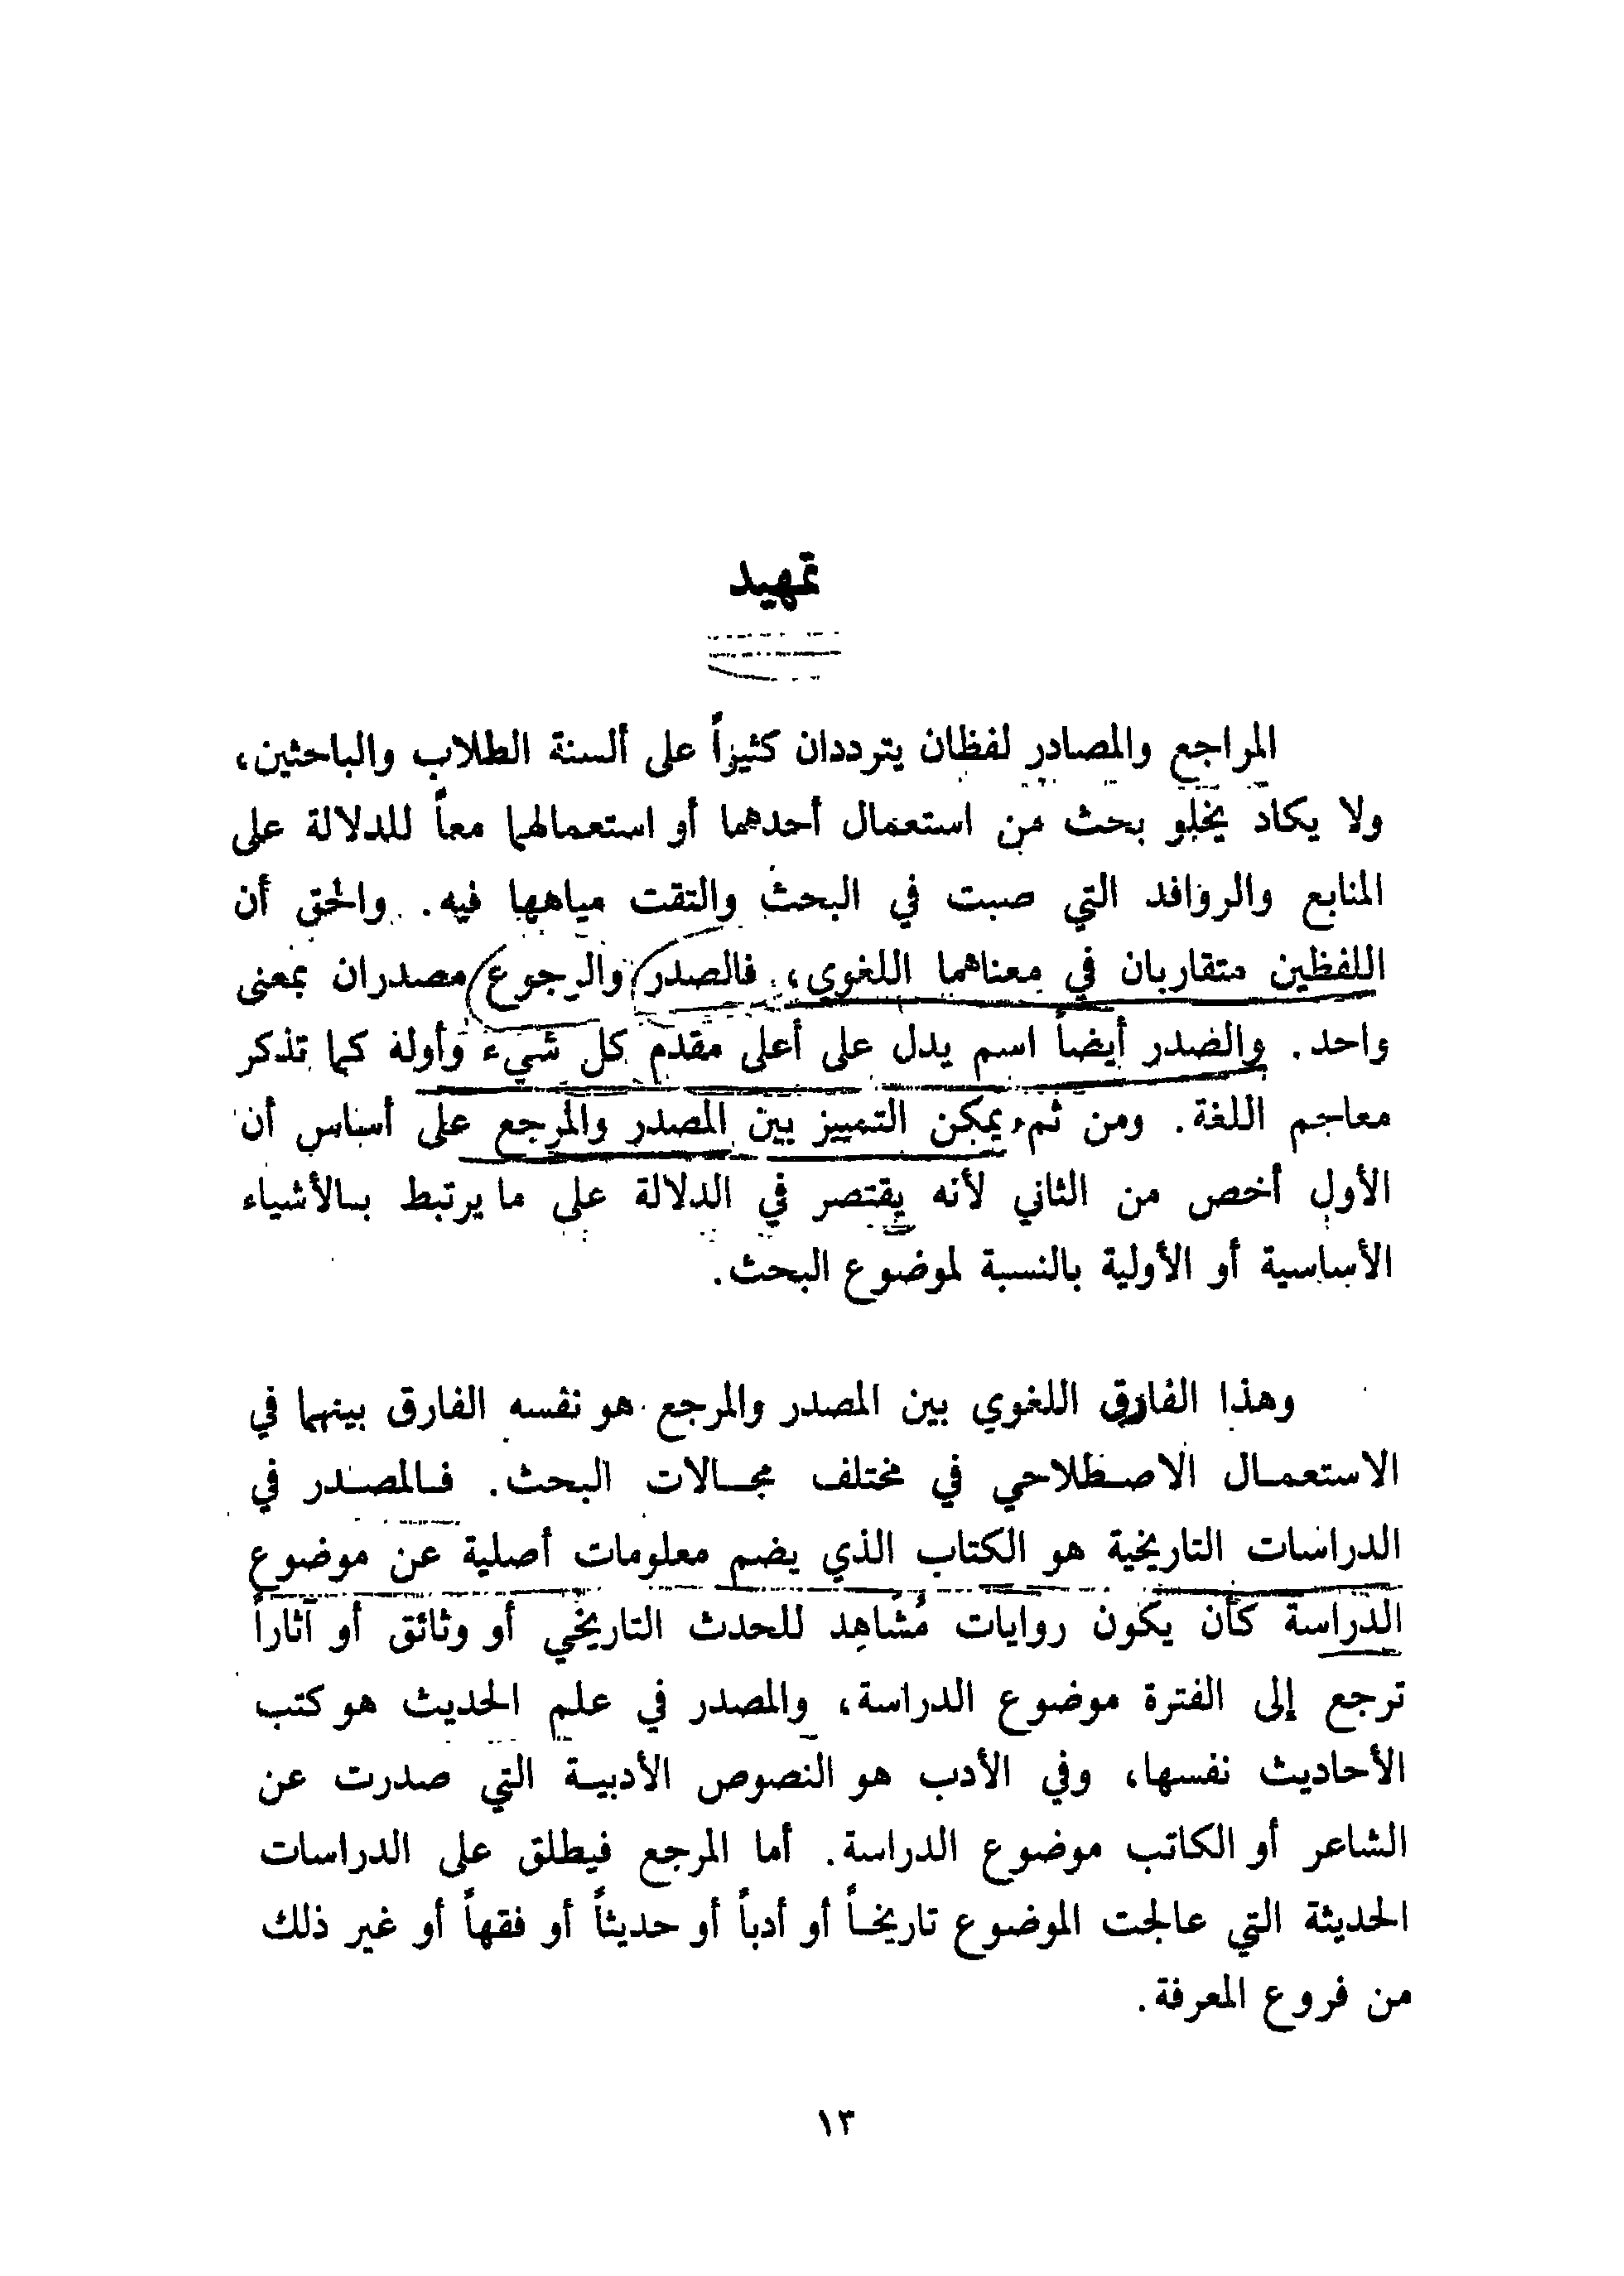 تمهيد
المراجع والمصادر لفظان يترددان كثيراً على ألسنة الطلاب والباحثين،
ولا يكاد يخلو بحث من استعمال أحدهما أو استعمالهما معاً للدلالة على
المنابع والروافد التي صبت في البحث والتقت مياهها فيه. والحق أن
اللفظين متقاربان في معناهما اللغوي، فالصدر والرجوع مصدران بمعنى
واحد. والصدر أيضاً اسم يدل على أعلى مقدم كل شيء وأوله كما تذكر
معاجم اللغة. ومن ثم يمكن التمييز بين المصدر والمرجع على أساس أن
الأول أخص من الثاني لأنه يقتصر في الدلالة على ما يرتبط بالأشياء
الأساسية أو الأولية بالنسبة لموضوع البحث.
وهذا الفارق اللغوي بين المصدر والمرجع هو نفسه الفارق بينهما في
الاستعمال الاصطلاحي في مختلف مجالات البحث. فالمصدر في
الدراسات التاريخية هو الكتاب الذي يضم معلومات أصلية عن موضوع
الدراسة كأن يكون روايات مُشَاهِد للحدث التاريخي أو وثائق أو آثاراً
ترجع إلى الفترة موضوع الدراسة، والمصدر في علم الحديث هو كتب
الأحاديث نفسها، وفي الأدب هو النصوص الأدبية التي صدرت عن
الشاعر أو الكاتب موضوع الدراسة. أما المرجع فيطلق على الدراسات
الحديثة التي عالجت الموضوع تاريخاً أو أدباً أو حديثاً أو فقهاً أو غير ذلك
من فروع المعرفة.
١٣